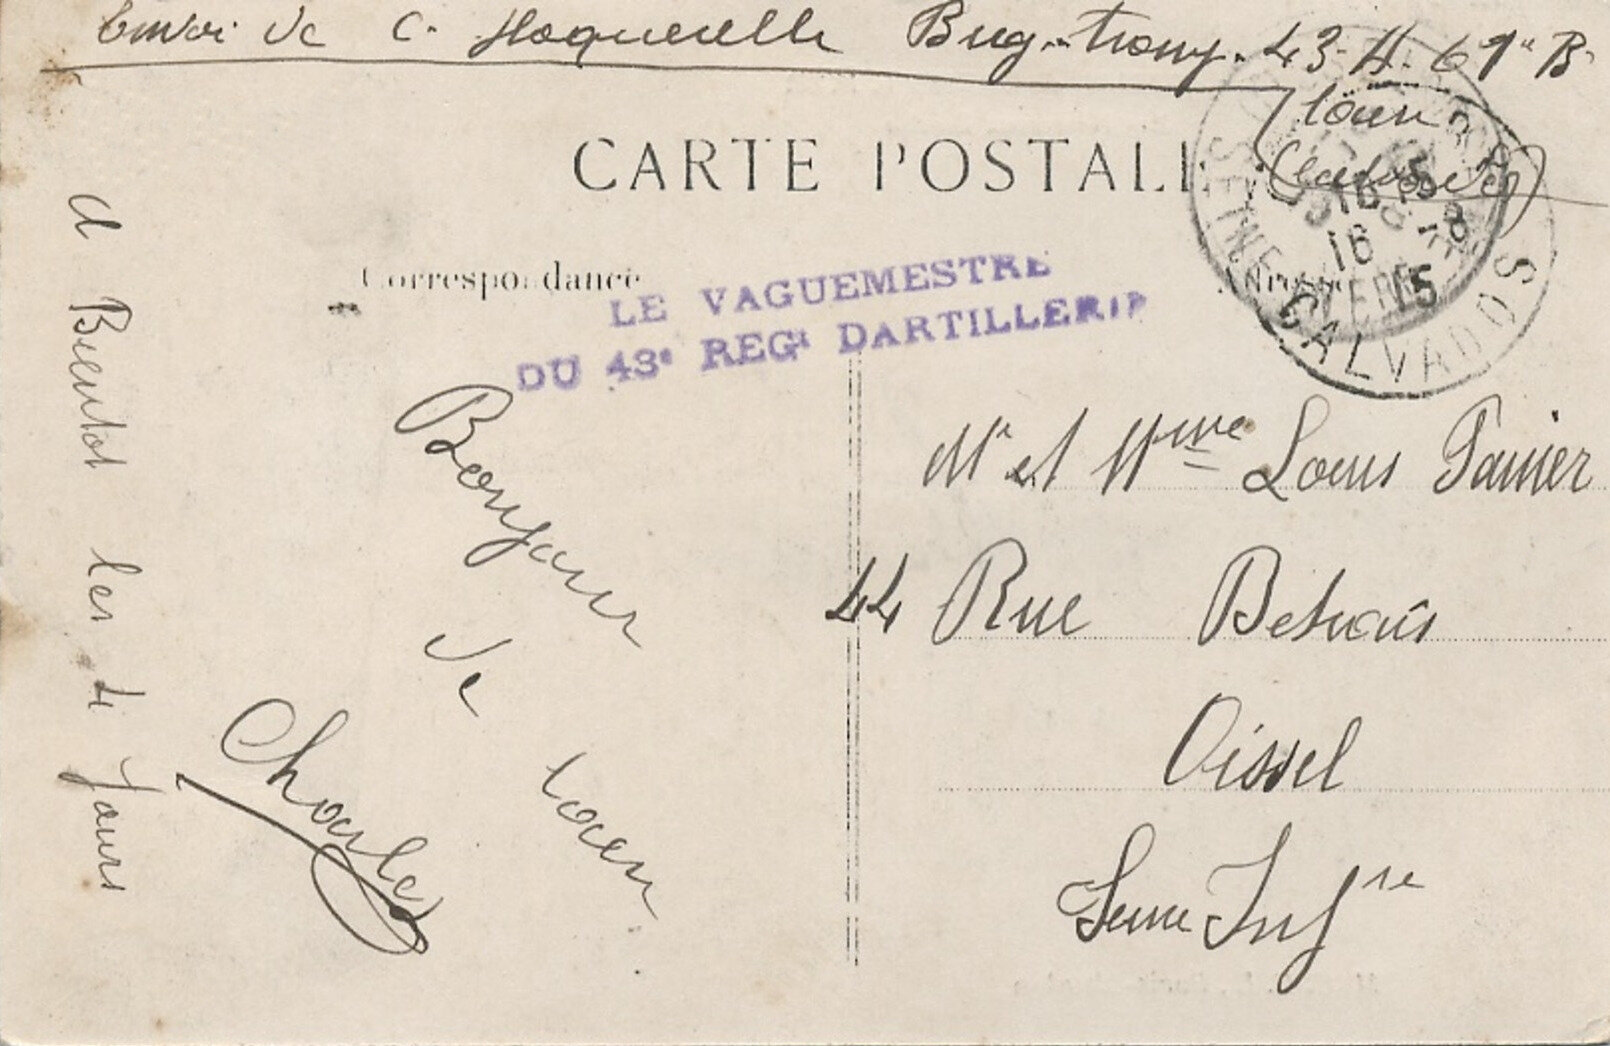 Envoi de C. Hoquerelle Brig. tromp. 43 A. 61e B.
Caen
Calvados
CARTE POSTALE
Correspondance
Adresse
LE VAGUEMESTRE
DU 43e REGt DARTILLERIE
16 15
16 -8
15
CALVADOS
SEINE
A Bientot les 4 Jours
Bonjour
de
Caen
Charles
Mr et Mme Louis Panier
44 Rue Betnaûs
Oissel
Seine Infre